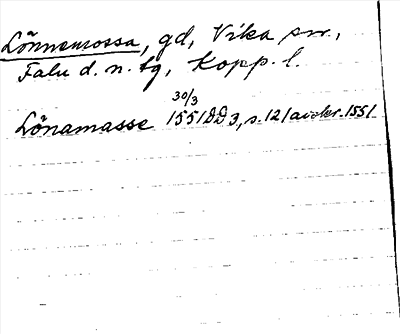 Lönnemossa, gd, Vika sn.,
Falu d. n. tg, Kopp. l.
30/3
Lönamasse 1551 DD 3, s. 121 avskr. 1551